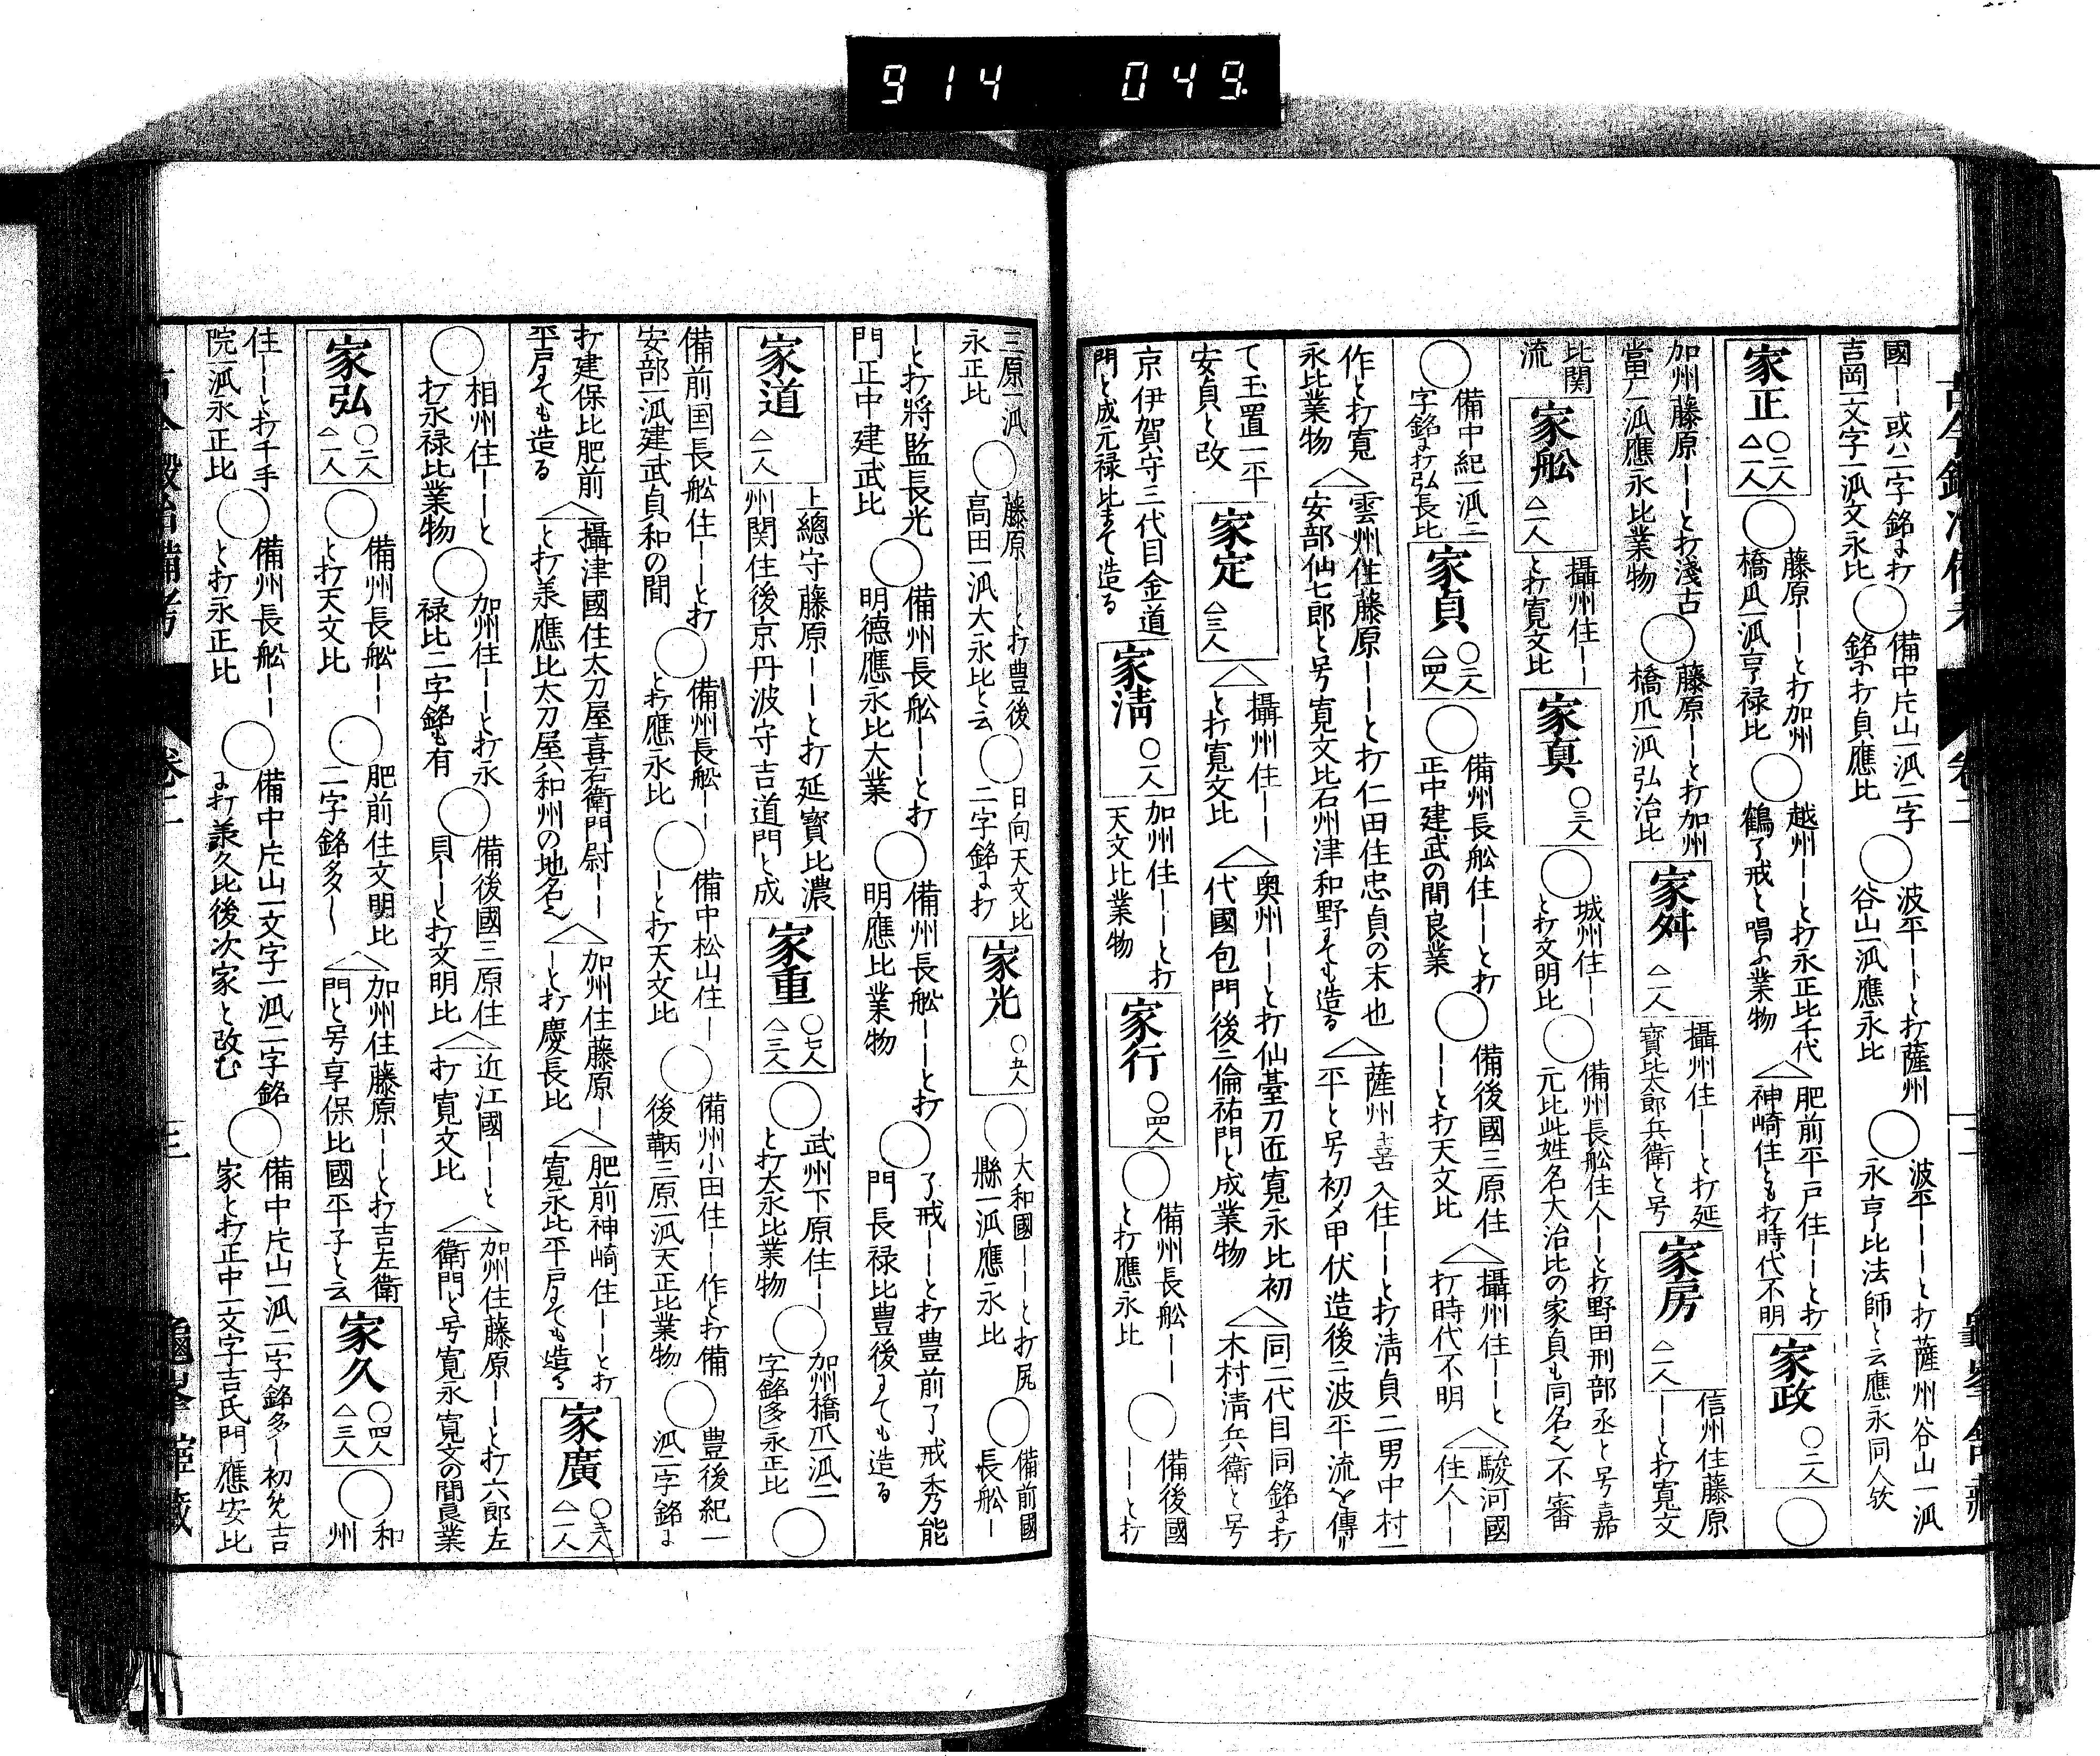 914 049.
國ーー或ハ二字銘ニ打
吉岡一文字一派文永比
○備中片山一派二字
銘ニ打貞應比
○波平ーーと打薩州
谷山一派應永比
○波平ーーと打薩州谷山一派
永亨比法師と云應永同人欤
家正 ○二人 △一人
○藤原ーーと打加州
橋爪一派亨禄比
○越州ーーと打永正比千代
鶴了戒と唱ふ業物
△肥前平戸住ーーと打
神崎住とも打時代不明
家政 ○二人
○
加州藤原ーーと打淺古
當广一派應永比業物
○藤原ーと打加州
橋爪一派弘治比
家舛 △一人
攝州住ーーと打延
寳比太郎兵衛と号
家房 △一人
信州住藤原
ーーと打寛文
比関
流
家舩 △一人
攝州住ーー
と打寛文比
家真 ○三人
○城州住ーー
と打文明比
○備州長舩住人ーーと打野田刑部丞と号嘉
元比此姓名大治比の家貞も同名之不審
○備中紀一派二
字銘ニ打弘長比
家貞 ○二人 △四人
○備州長舩住ーーと打
正中建武の間良業
○備後國三原住
ーーと打天文比
△攝州住ーーと
打時代不明
△駿河國
住人ーー
作と打寛
永比業物
△雲州住藤原ーーと打仁田住忠貞の末也
安部仙七郎と号寛文比石州津和野にても造る
△薩州喜入住ーーと打清貞二男中村一
平と号初メ甲伏造後ニ波平流を傳
て玉置一平
安貞と改
家定 △三人
△攝州住ーー
と打寛文比
△奥州ーーと打仙臺刀匠寛永比初
代國包門後ニ倫祐門と成業物
△同二代目同銘ニ打
木村清兵衛と号
京伊賀守三代目金道
門と成元禄比まて造る
家清 ○一人
加州住ーーと打
天文比業物
家行 ○四人
○備州長舩ーー
と打應永比
○備後國
ーーと打
三原一派
永正比
○藤原ーーと打豊後
高田一派大永比と云
○日向天文比
二字銘ニ打
家光 ○五人
○大和國ーーと打尻
縣一派應永比
○備前國
長舩ー
ーと打將監長光
門正中建武比
○備州長舩ーーと打
明德應永比大業
○備州長舩ーーと打
明應比業物
○了戒ーーと打豊前了戒秀能
門長禄比豊後にても造る
家道 △一人
上總守藤原ーーと打延寳比濃
州関住後京丹波守吉道門と成
家重 ○七人 △三人
○武州下原住ーー
と打大永比業物
○加州橋爪一派二
字銘多永正比
○
備前国長舩住ーーと打
安部一派建武貞和の間
○備州長舩ーー
と打應永比
○備中松山住ー
ーと打天文比
○備州小田住ーー作と打備
後鞆三原一派天正比業物
○豊後紀一
派二字銘ニ
打建保比肥前
平戸にても造る
△攝津國住太刀屋喜右衛門尉ーー
と打羕應比太刀屋ハ和州の地名之
△加州住藤原ー
ーと打慶長比
△肥前神崎住ーーと打
寛永比平戸にても造る
家廣 △一人
○相州住ーーと
打永禄比業物
○加州住ーーと打永
禄比二字銘も有
○備後國三原住
貝ーーと打文明比
△近江國ーーと
打寛文比
△加州住藤原ーーと打六郎左
衛門と号寛永寛文の間良業
家弘 ○二人 △一人
○備州長舩ーー
と打天文比
○肥前住文明比
二字銘多ー
△加州住藤原ーーと打吉左衛
門と号享保比國平子と云
家久 ○四人 △三人
○和
州
住ーーと打千手
院一派永正比
○備州長舩ーー
と打永正比
○備中片山一文字一派二字銘
ニ打羕久比後次家と改む
○備中片山一派二字銘多ー初銘吉
家と打正中一文字吉氏門應安比